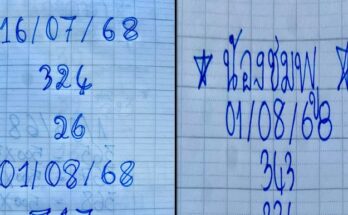 16/07/68
324
26
01/08/68
☆ น้องชมพู ☆
01/08/68
343